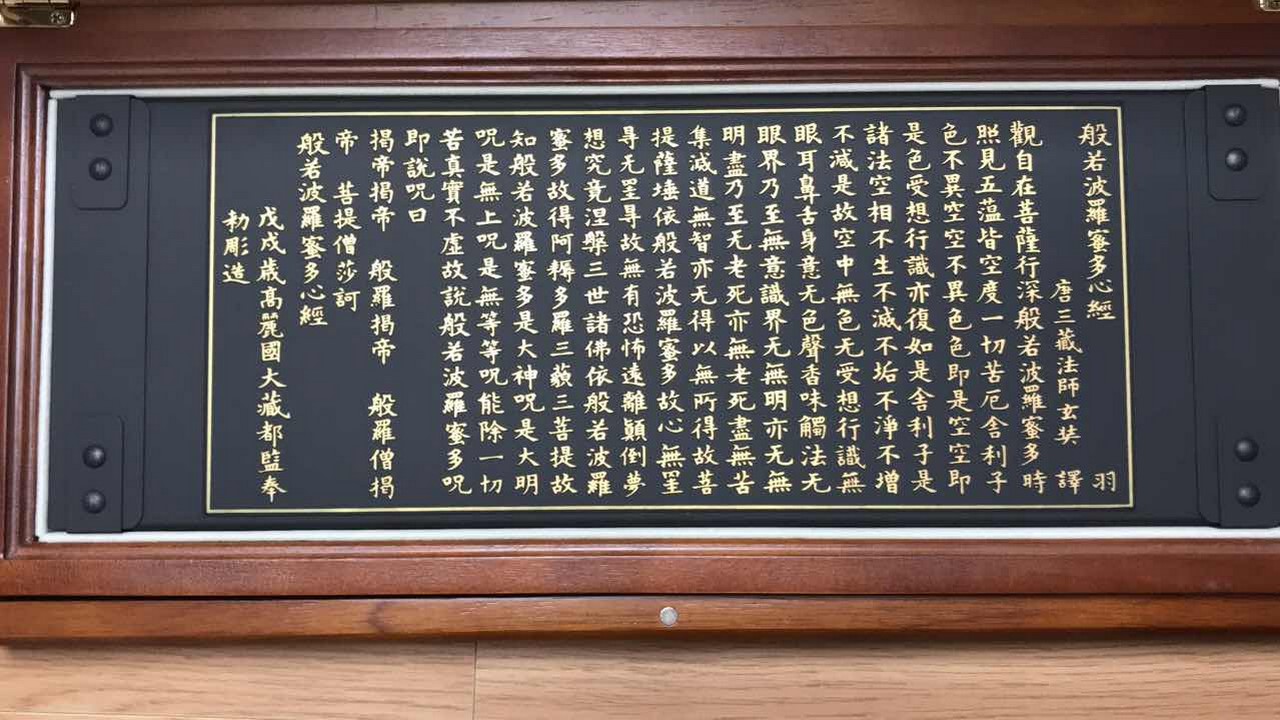 般若波羅蜜多心經 羽
唐三藏法師玄奘 譯
觀自在菩薩行深般若波羅蜜多時
照見五蕰皆空度一切苦厄舍利子
色不異空空不異色色即是空空即
是色受想行識亦復如是舍利子是
諸法空相不生不滅不垢不淨不增
不減是故空中無色无受想行識無
眼耳鼻舌身意无色聲香味觸法无
眼界乃至無意識界无無明亦无無
明盡乃至无老死亦無老死盡無苦
集滅道無智亦无得以無所得故菩
提薩埵依般若波羅蜜多故心無罣
㝵无罣㝵故無有恐怖遠離顛倒夢
想究竟涅槃三世諸佛依般若波羅
蜜多故得阿耨多羅三藐三菩提故
知般若波羅蜜多是大神呪是大明
呪是無上呪是無等等呪能除一切
苦真實不虛故說般若波羅蜜多呪
即說呪曰
揭帝揭帝 般羅揭帝 般羅僧揭
帝 菩提僧莎訶
般若波羅蜜多心經
戊戌歲高麗國大藏都監奉
勅彫造